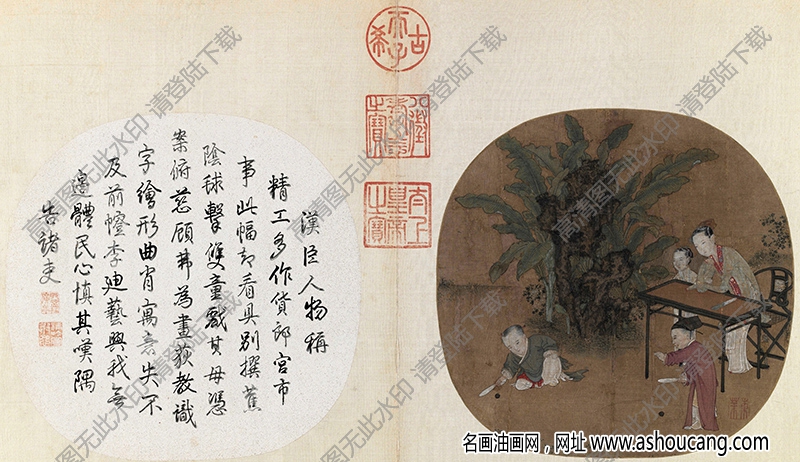 漢臣人物稱
精工多作貨郎宮市
事此幅却看具別撰蕉
陰毬擊雙童戲其母憑
案俯慈顧弗為畫荻教識
字繪形曲肖寓意失不
及前李迪藝與我無
體民心慎其嘆隅
告諸吏
古希天子
八徵耄念之寶
太上皇帝之寶
高清图无此水印 请登陆下载
名画油画网，网址 www.ashoucang.com